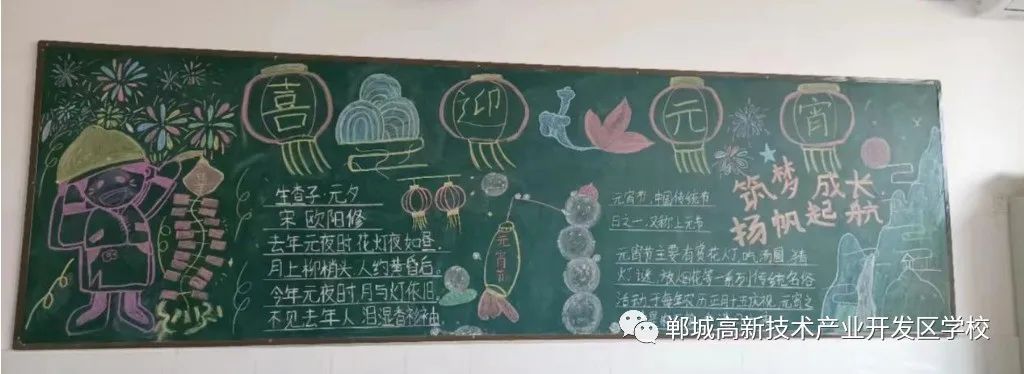 喜迎元宵
生查子·元夕
宋 欧阳修
去年元夜时花灯夜如昼.
月上柳梢头 人约黄昏后。
今年元夜时月与灯依旧.
不见去年人 泪湿春衫袖
元宵节
元宵节,中国传统节
日之一,又称上元节
元宵节主要有赏花灯 吃汤圆 猜
灯谜、放烟花等一系列传统民俗
活动于每年农历正月十五庆祝.元宵之
筑梦 成长
扬帆起航
郸城高新技术产业开发区学校